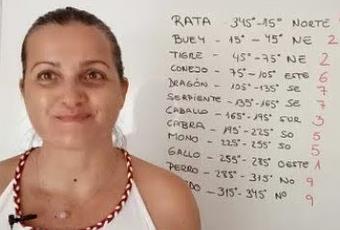 RATA - 345°-15° NORTE
BUEY - 15° - 45° NE 2
TIGRE - 45°-75° NE 2
CONEJO - 75°-105° ESTE 6
DRAGÓN - 105°-135° SE 7
SERPIENTE - 135°-165° SE 7
CABALLO - 165°-195° SUR 3
CABRA - 195°-225° SO 5
MONO - 225°-255° SO 5
GALLO - 255°-285° OESTE 1
PERRO - 285°-315° NO 9
DO - 315°-345° NO 9